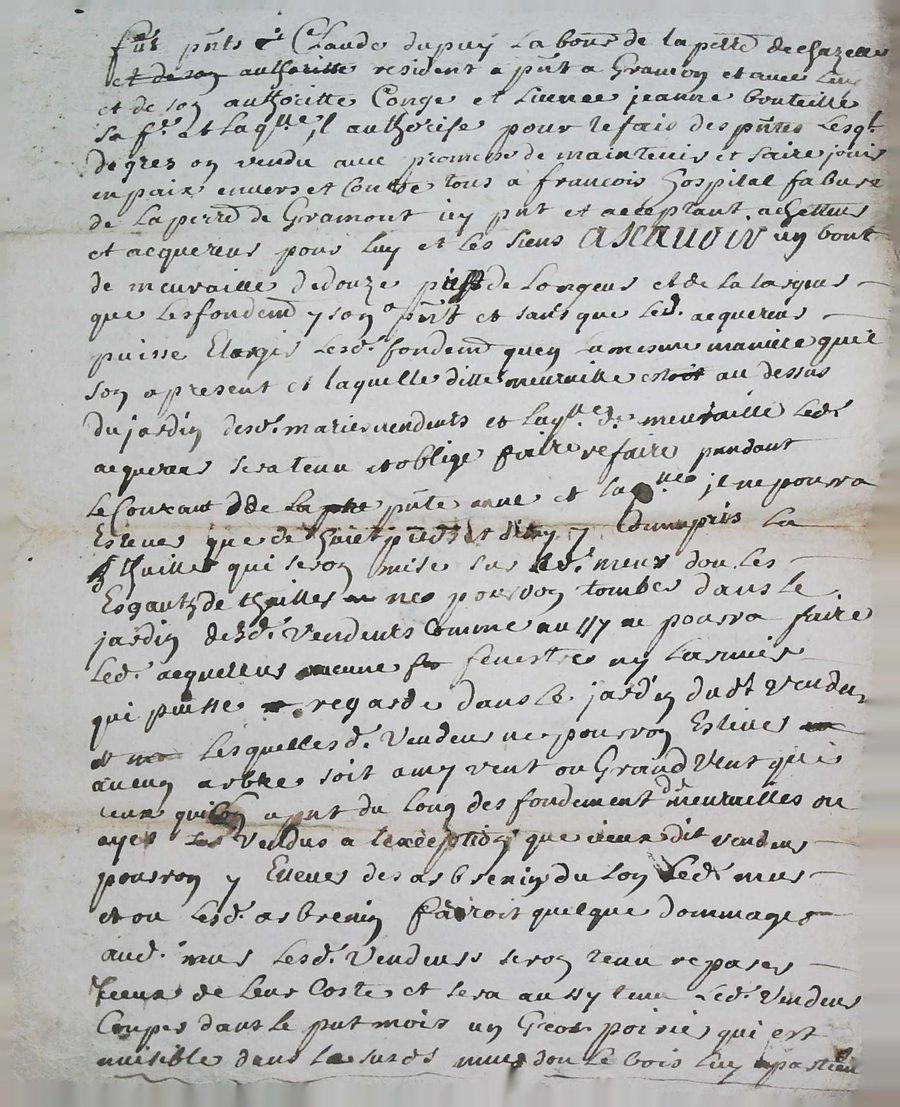 fut pnts Claude dupuy Labour de la perre de chazelles
et de son authoritte resident a pnt a Gramon et avec
et de son authoritte Conge et Licence jeanne bouteille
sa fe et laqlle il authorise pour le fais des pntes Lesql
de grez on vendu avec promesse de maintenir et faire jouir
en paix envers et Contre tous a francois hospital fabure
de Laperre de Gramont icy pnt et acceptant achetteur
et acquereur pour luy et les siens ASCAUOIR un bout
de meuraille dedouze pieds de Longeur et de la largeur
que les fondemt y son a pnt et sans que Led. acquereur
puisse Elargir Lesd. fondemt quen la mesme maniere quil
son a present et laquelle ditte meuraille est au dessus
du jardin desd. maries vendeurs et laqlle d. meuraille Led.
acquereur sera tenu et oblige faire refaire pandant
le Courant de La pnte anne et la il ne pourra
Eslever que de huict pieds et y Compris La
thuille qui seron mise sur led. meur don les
Esgauts de thuilles ne pourron tomber dans le
jardin desd. Vendeurs Comme aussy ne pourra faire
Led. acquereur aucune fenestre ny Larmier
qui puisse regarde dans le jardin dudt vendeur
Lesquelles d. Vendeurs ne pourron Eslever
aucun arbre soit amy vent ou Grand Vent que
ceux quil son a pnt du long des fondement de meurailles ou
ayes Vendus a lexception que ceux dit vendeurs
pourron y Ellever des arbrenin du Lon Led. mur
et ou Lesd. arbrenin fairoit quelque dommage
aud. mur Lesd. Vendeurs seron tenu reparer
Ceux de Leur Coste et sera aussy tenu Led. Vendeur
Couper dans le pnt mois un Gros poirie qui est
nuisible dans le susd mur don le bois luy apartien